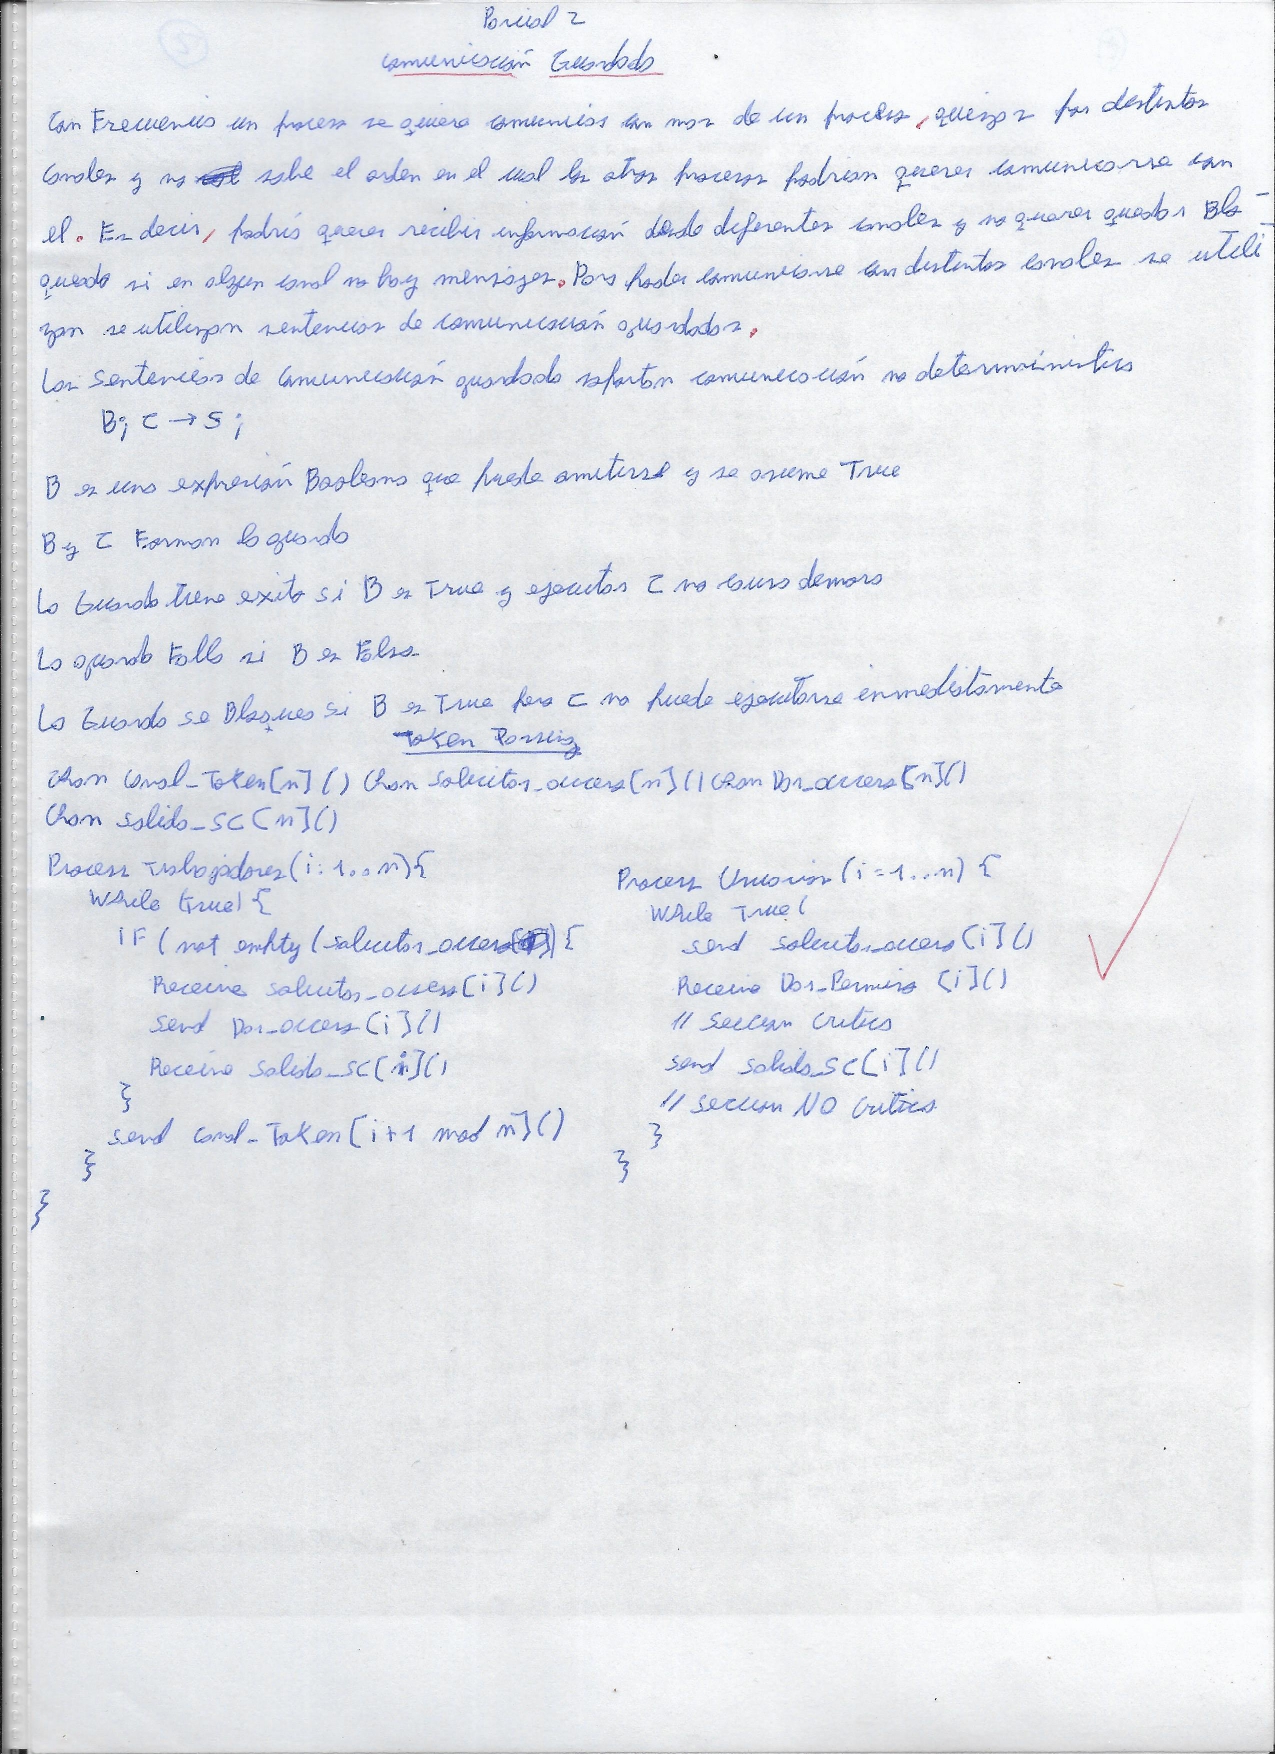 Parcial 2
Comunicación Guardada
Con Frecuencia un proceso se quiere comunicar con mas de un proceso, quizas por distintos
canales y no sabe el orden en el cual los otros procesos podrian querer comunicarse con
el. Es decir, podría querer recibir información desde diferentes canales y no querer quedar Blo-
queado si en algun canal no hay mensajes. Para poder comunicarse con distintos canales se utili
zan se utilizan sentencias de comunicación guardadas.
Las Sentencias de Comunicación guardada soportan comunicación no deterministica
B; C → S;
B es una expresión Booleana que puede omitirse y se asume True
B y C Forman la guarda
La Guarda tiene exito si B es True y ejecutar C no causa demora
La guarda Falla si B es False
La Guarda se Bloquea si B es True pero C no puede ejecutarse inmediatamente
Token Passing
Chan Canal_Token[n]() Chan Solicitar_acceso[n]() Chan Dar_acceso[n]()
Chan salida_SC[n]()
Process Trabajadores(i:1..n){
While (true) {
IF (not empty (solicitar_acceso[i])) {
Receive solicitar_acceso[i]()
Send Dar_acceso[i]()
Receive Salida_SC[i]()
}
send canal_Token[i+1 mod n]()
}
}
Process Usuarios (i=1..n) {
While True(
send solicitar_acceso[i]()
Receive Dar_Permiso [i]()
// Seccion Critica
send salida_SC[i]()
// seccion NO Critica
}
}